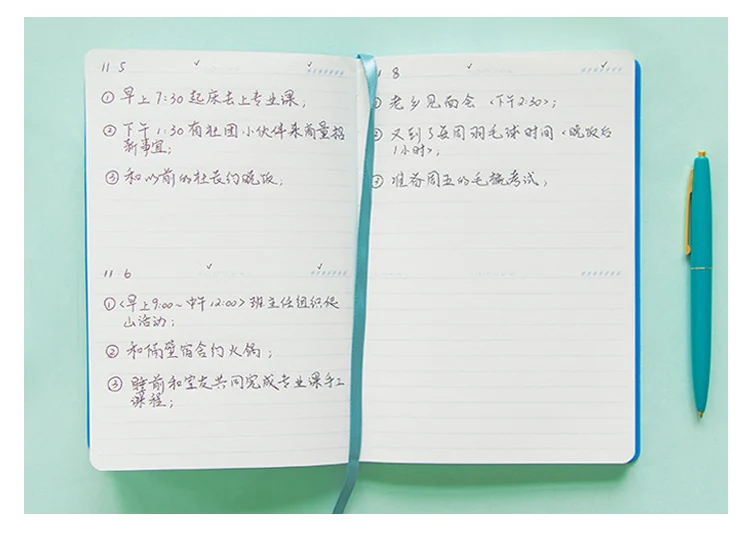 11 5
① 早上7:30起床去上专业课;
② 下午1:30有社团小伙伴来商量招
新事宜;
③ 和以前的社长约晚饭;
11 6
①<早上9:00~中午12:00>班主任组织爬
山活动;
② 和隔壁宿舍约火锅;
③ 睡前和室友共同完成专业课手工
课程;
11 8
① 老乡见面会 <下午2:30>;
② 又到了每周羽毛球时间<晚饭后
1小时>;
③ 准备周五的毛概考试;